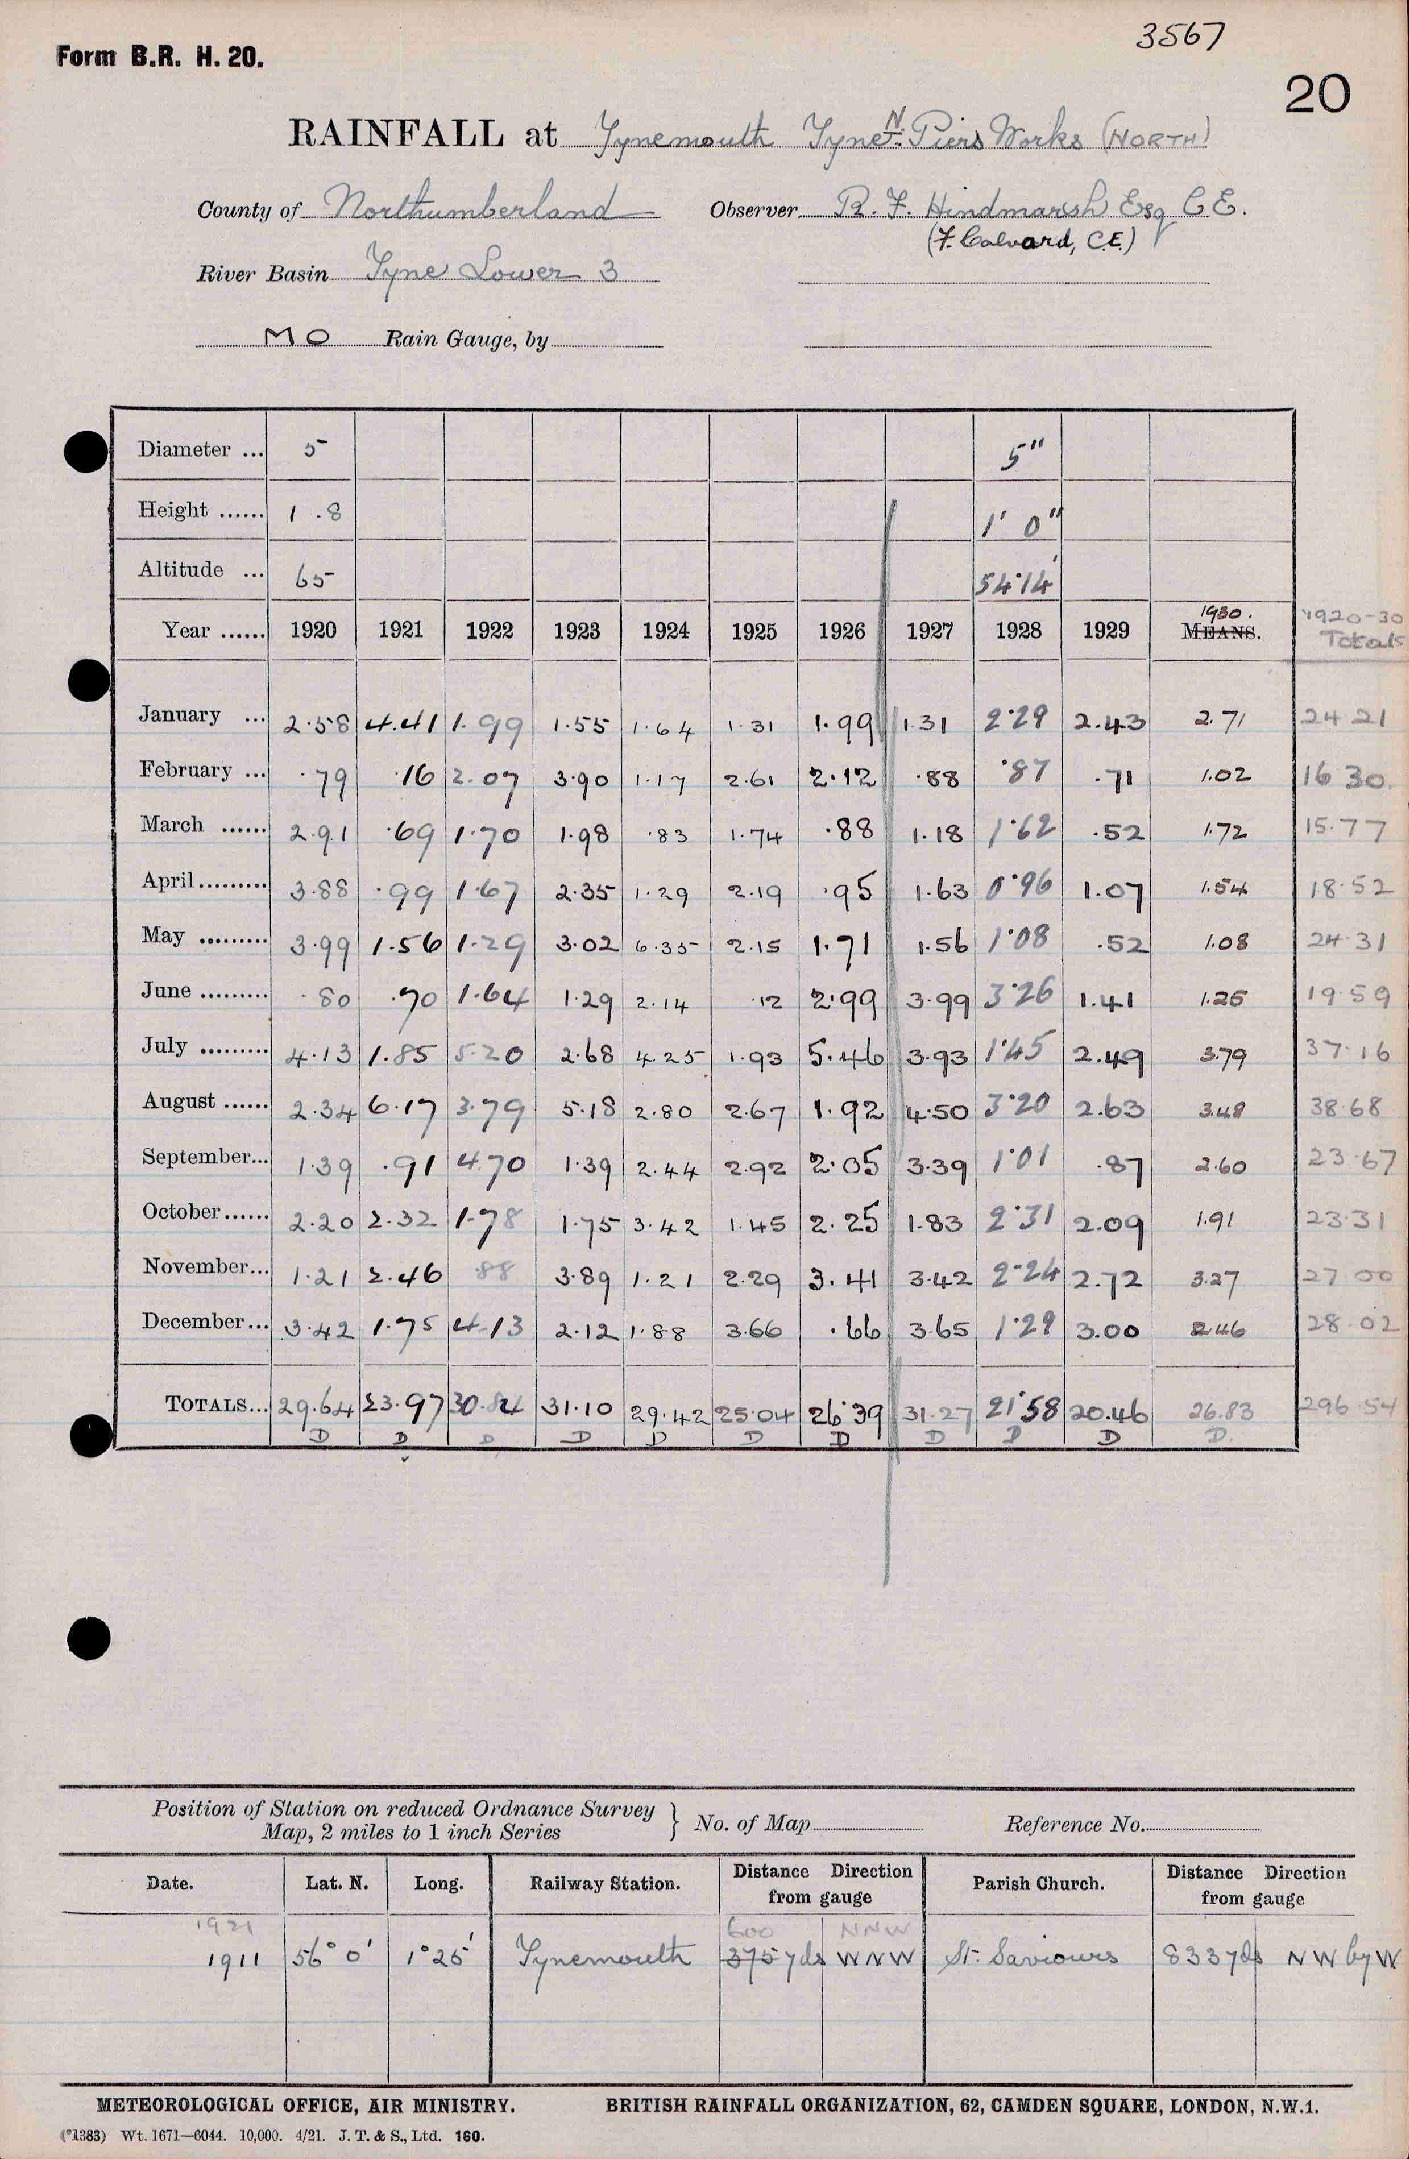 3567
Form B.R. H. 20.
20
RAINFALL at Tynemouth Tyne N. Piers Works (NORTH)
County of Northumberland Observer R. F. Hindmarsh Esq C.E.
(F. Calvard, C.E.)
River Basin Tyne Lower 3
MO Rain Gauge, by
Diameter ... 5 5"
Height ...... 1 .8 1' 0"
Altitude ... 65 54.14'
1930. 1920-30
Year ...... 1920 1921 1922 1923 1924 1925 1926 1927 1928 1929 MEANS. Totals
January ... 2.58 4.41 1.99 1.55 1.64 1.31 1.99 1.31 2.29 2.43 2.71 24.21
February ... .79 .16 2.07 3.90 1.17 2.61 2.12 .88 .87 .71 1.02 16 30.
March ...... 2.91 .69 1.70 1.98 .83 1.74 .88 1.18 1.62 .52 1.72 15.77
April ......... 3.88 .99 1.67 2.35 1.29 2.19 .95 1.63 0.96 1.07 1.54 18.52
May ......... 3.99 1.56 1.29 3.02 6.35 2.15 1.71 1.56 1.08 .52 1.08 24.31
June ......... .80 .70 1.64 1.29 2.14 .12 2.99 3.99 3.26 1.41 1.25 19.59
July ......... 4.13 1.85 5.20 2.68 4.25 1.93 5.46 3.93 1.45 2.49 3.79 37.16
August ...... 2.34 6.17 3.79 5.18 2.80 2.67 1.92 4.50 3.20 2.63 3.48 38.68
September... 1.39 .91 4.70 1.39 2.44 2.92 2.05 3.39 1.01 .87 2.60 23.67
October...... 2.20 2.32 1.78 1.75 3.42 1.45 2.25 1.83 2.31 2.09 1.91 23.31
November... 1.21 2.46 .88 3.89 1.21 2.29 3.41 3.42 2.24 2.72 3.27 27.00
December... 3.42 1.75 4.13 2.12 1.88 3.66 .66 3.65 1.29 3.00 2.46 28.02
TOTALS... 29.64 23.97 30.84 31.10 29.42 25.04 26.39 31.27 21.58 20.46 26.83 296.54
D D D D D D D D D D D.
Position of Station on reduced Ordnance Survey
Map, 2 miles to 1 inch Series } No. of Map Reference No.
Date. Lat. N. Long. Railway Station. Distance Direction from gauge Parish Church. Distance Direction from gauge
1921 600 NNW
1911 56° 0' 1° 25' Tynemouth 375 yds WNW St. Saviours 833 yds NW by W
METEOROLOGICAL OFFICE, AIR MINISTRY. BRITISH RAINFALL ORGANIZATION, 62, CAMDEN SQUARE, LONDON, N.W.1.
(*1383) Wt. 1671—6044. 10,000. 4/21. J. T. & S., Ltd. 160.